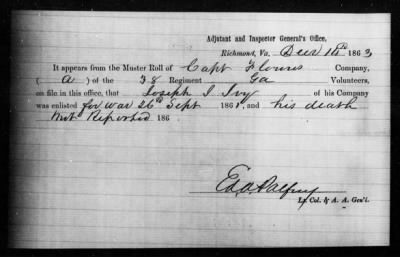 Adjutant and Inspector General's Office,
Richmond, Va. Decr 18th 1863
It appears from the Muster Roll of Capt Flowers Company,
( A ) of the 38 Regiment Ga Volunteers,
on file in this office, that Joseph I Ivy of his Company
was enlisted for war 26th Sept 1861, and his death
Not Reported 186
Ed. A Palfrey
Lt. Col. & A. A. Gen'l.